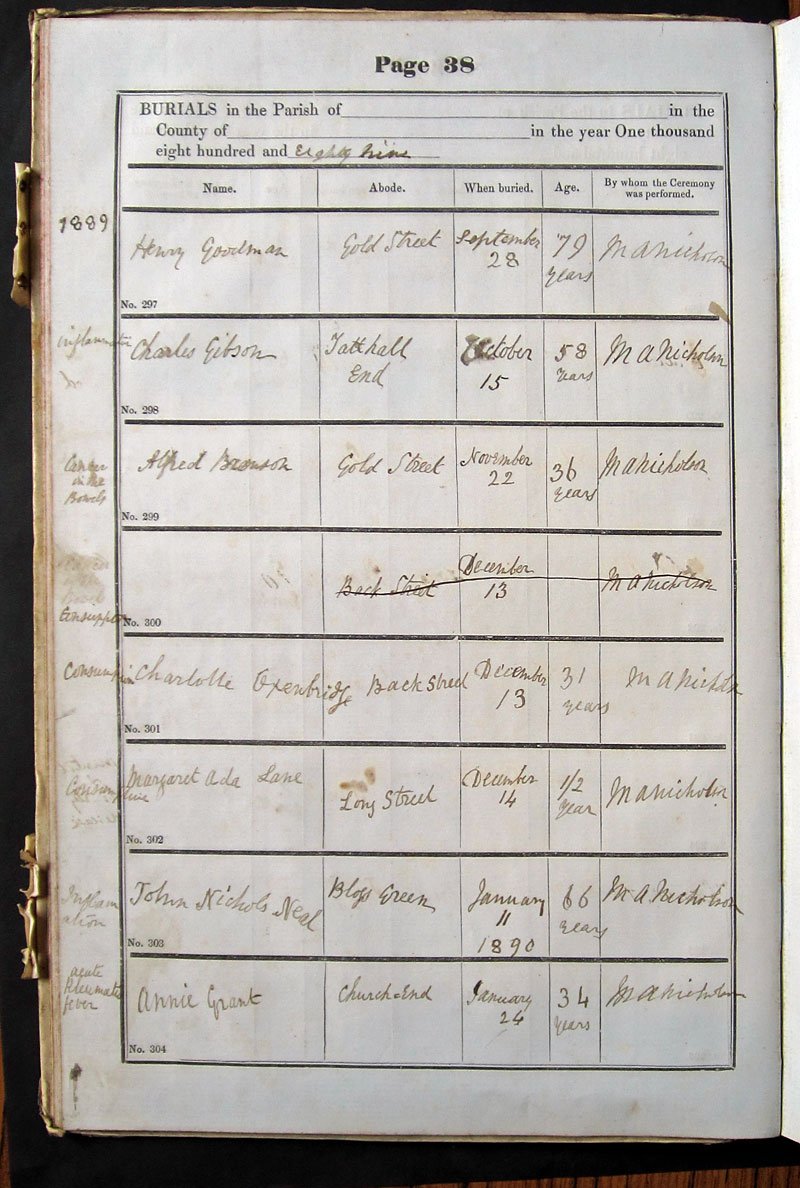 Page 38
BURIALS in the Parish of in the
County of in the year One thousand
eight hundred and Eighty Nine
Name. Abode. When buried. Age. By whom the Ceremony was performed.
1889
Henry Goodman Gold Street September 28 79 years M A Nicholson
No. 297
Charles Gibson Tatthall End October 15 58 Years M A Nicholson
No. 298
Cancer in the Bowels
Alfred Branson Gold Street November 22 36 years M A Nicholson
No. 299
Back Street December 13 M A Nicholson
No. 300
Charlotte Oxenbridge Back Street December 13 31 years M A Nicholson
No. 301
Margaret Ada Lane Long Street December 14 1/2 year M A Nicholson
No. 302
Inflam ation
John Nichols Neal Green January 11 1890 66 years M A Nicholson
No. 303
acute Rheumatic fever
Annie Grant Church End January 24 34 years M A Nicholson
No. 304